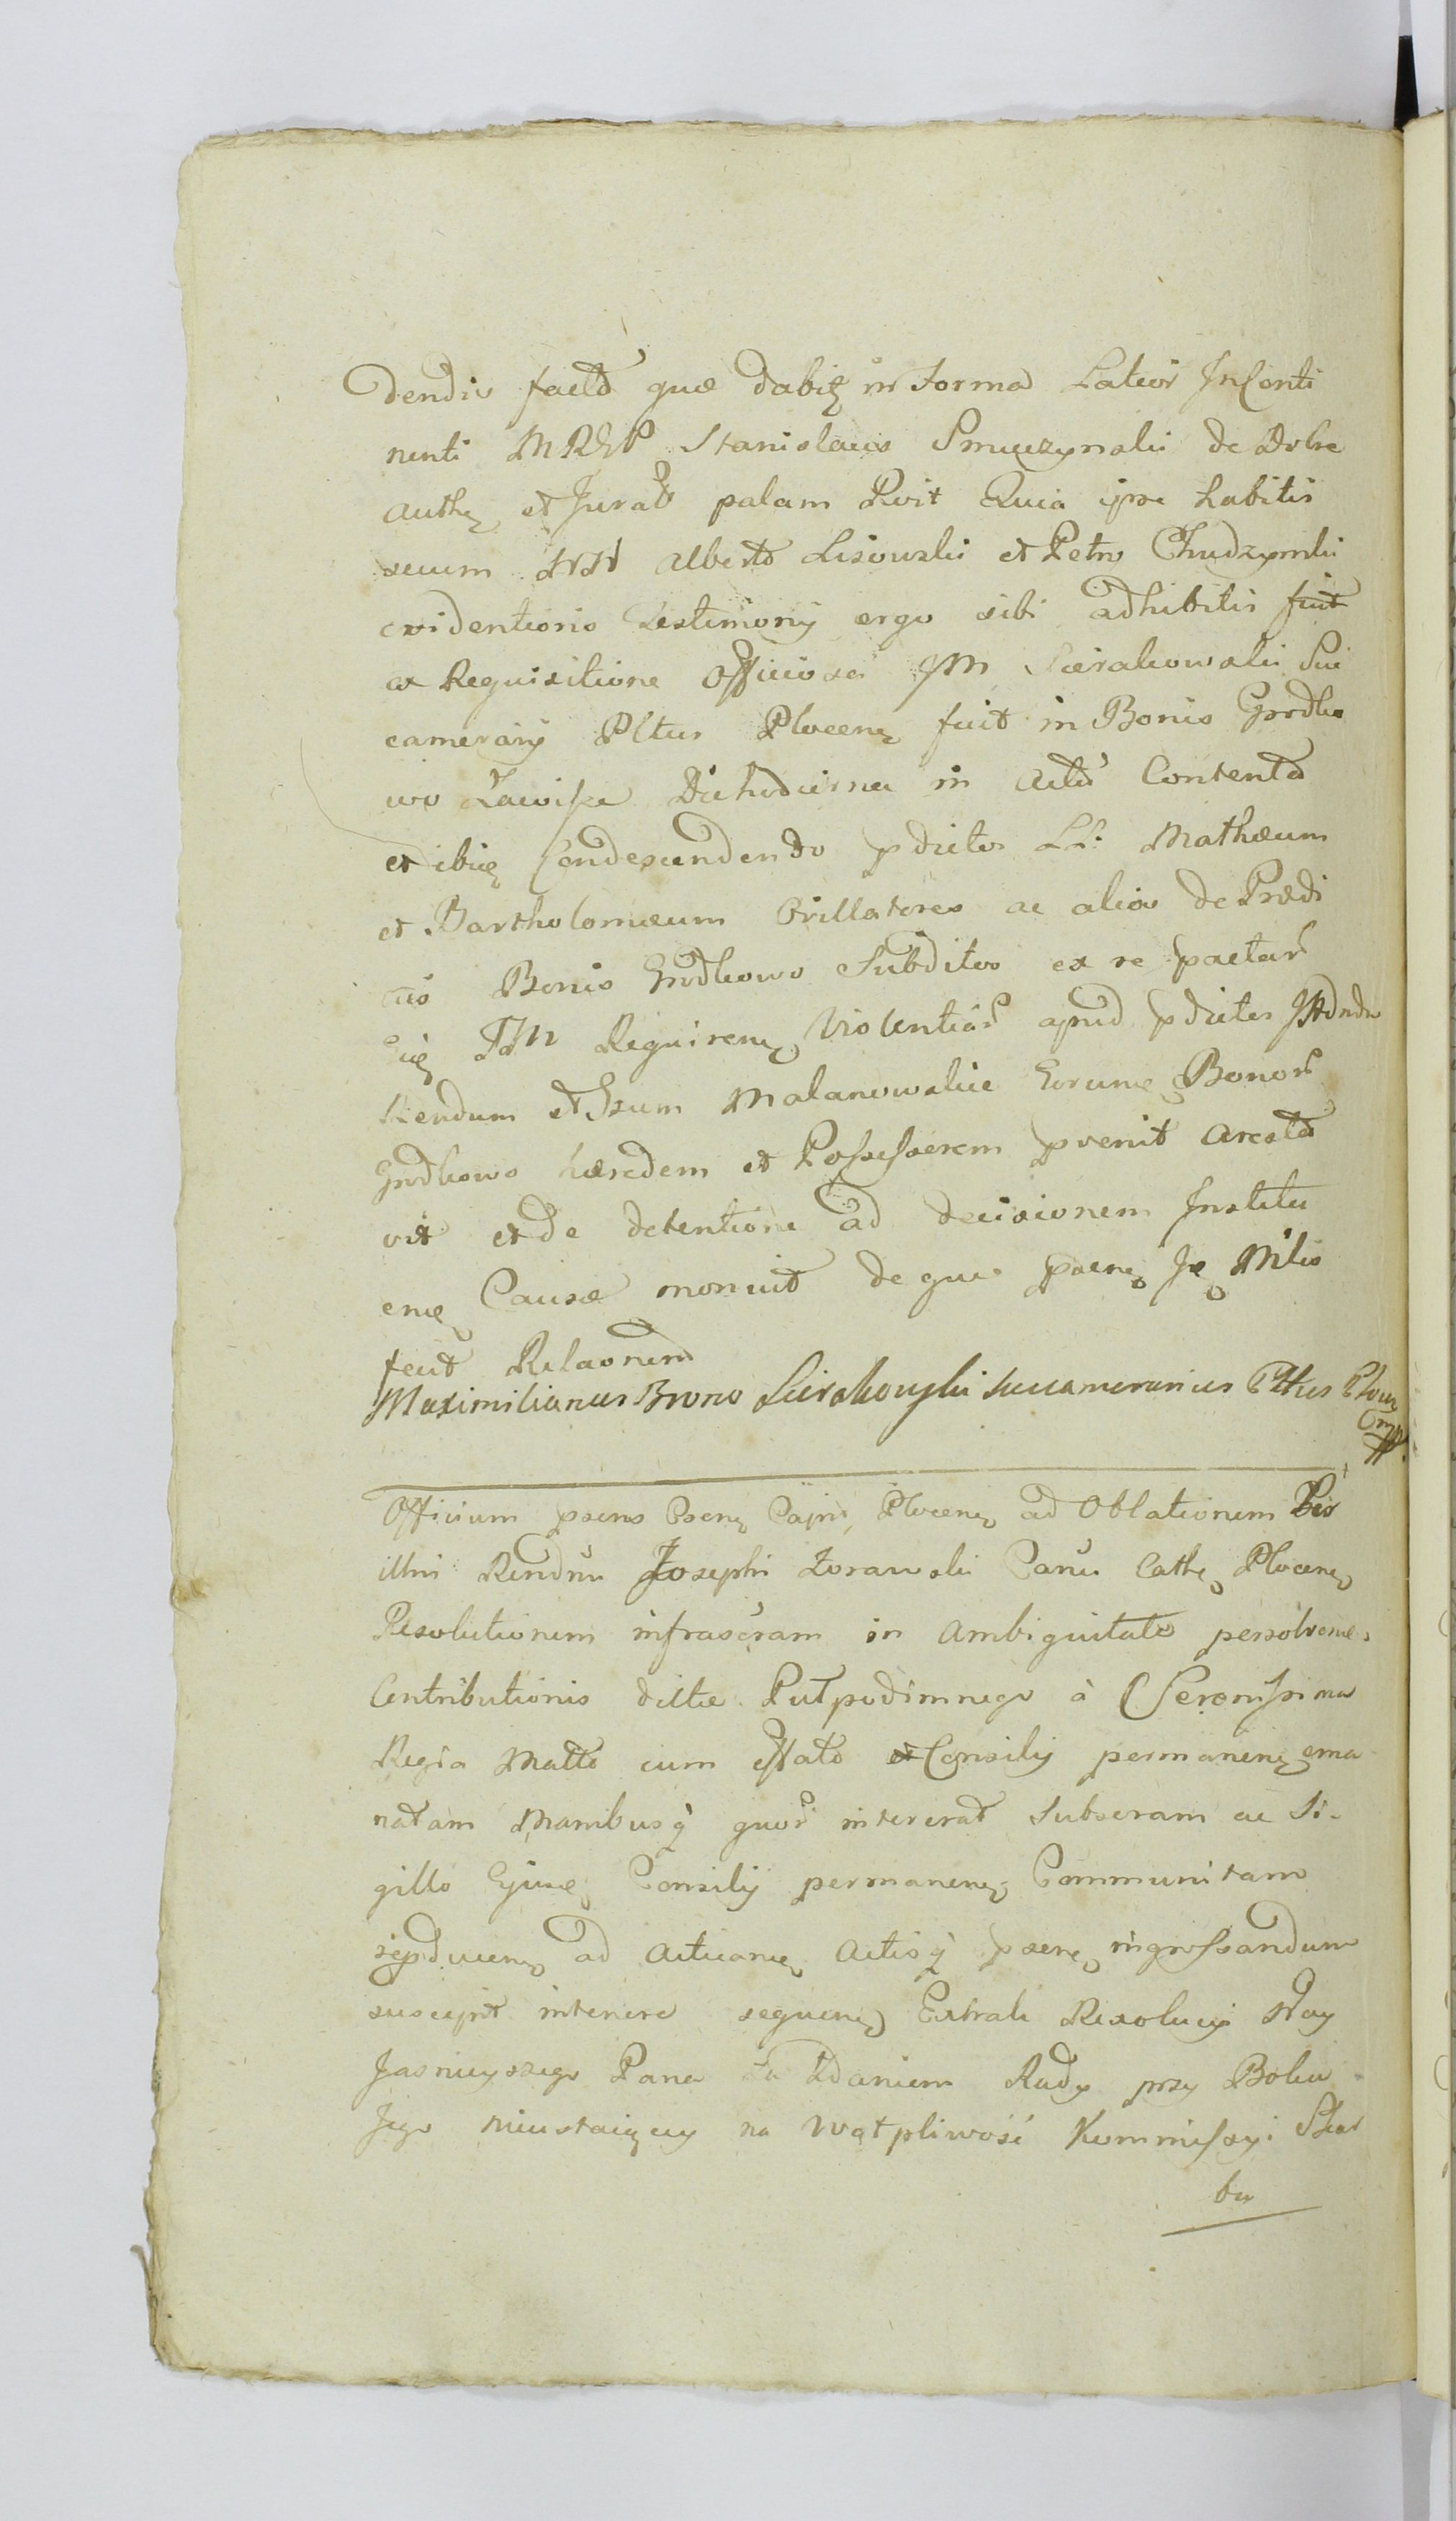 Dendis facta quæ dabitz in forma Latiori Inconti
nenti MRGP Stanislaus Smuczynski de Dobre
authz et Jurat palam Rvit Quia ipse habitis
secum NN Alberto Lisowski et Petro Chudzynski
evidentioris testimonij ergo sibi adhibitis fuit
ex Requisitione Officiosa JM Sierakowski Suc
camerarij Pltus Plocenz fuit in Bonis Grodko
wo Ławise Die hodierna in actu Contenta
et ibiq Condescendendo pdictos LL. Mathæum
et Bartholomæum Orillatores ac alios de Prædi
ctis Bonis Grodkowo Subditos ex re patrar
Eiq JM Requirenz Violentiar apud pdictos
et Malanowskie Eorunq Bonor
Grodkowo hæredem et Possessorem pvenit aresta
vit et de detentione ad decisionem Institu
enz Causæ monuit de quo psenz Mtis
fecit Relaonem
Maximilianus Bruno Sierakowski Succamerarius Pltus Plocen
mp.
Officium psens Csenz Capni Plocenz ad Oblationem Per
illni Rendnu Josephi Zorawski Canci Cathz Plocenz
Resolutionem infrascram in ambiguitate persolvenz
Contributionis dictæ Putpodimnego à Serenissima
Regia Matte cum Consilij permanenz ema
natam Manibusq quor intererat Subscram ac Si-
gillo Ejusq Consilij permanenz Communitam
repducenz ad acticanz Actisq psenz ingrossandum
suscepit tenore sequenz Extrakt Rezolucyi Nay
Jasnieyszego Pana Za Zdaniem Rady przy Boku
Jego Nieustaiącey na Wątpliwość Kommissyi Skar
bu